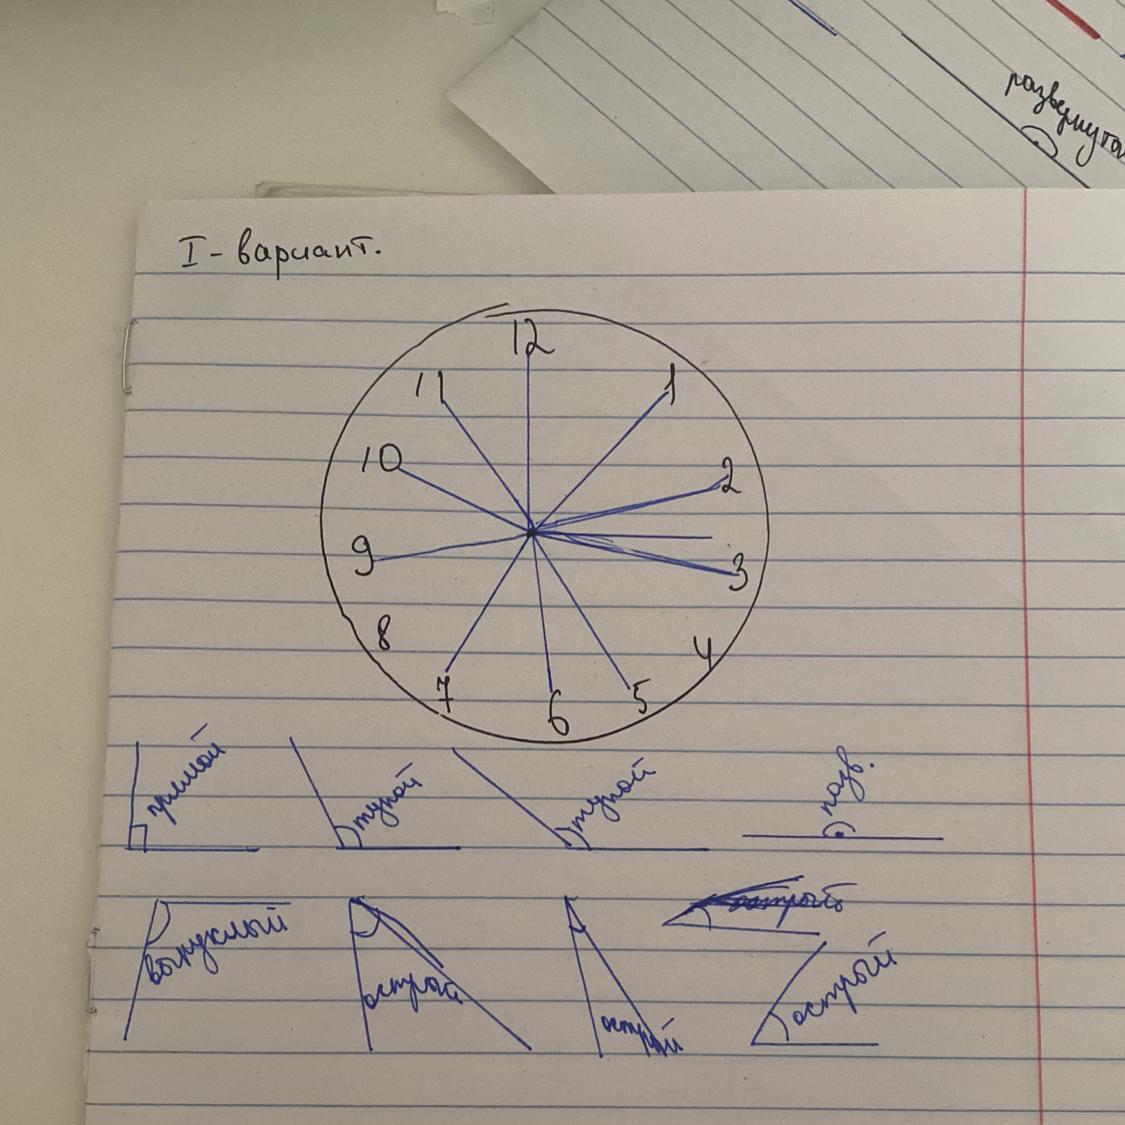 развернутой
I - вариант.
12
11 1
10 2
9 3
8 4
7 6 5
прямой тупой тупой разв.
выпуклый острый острый острый
острый